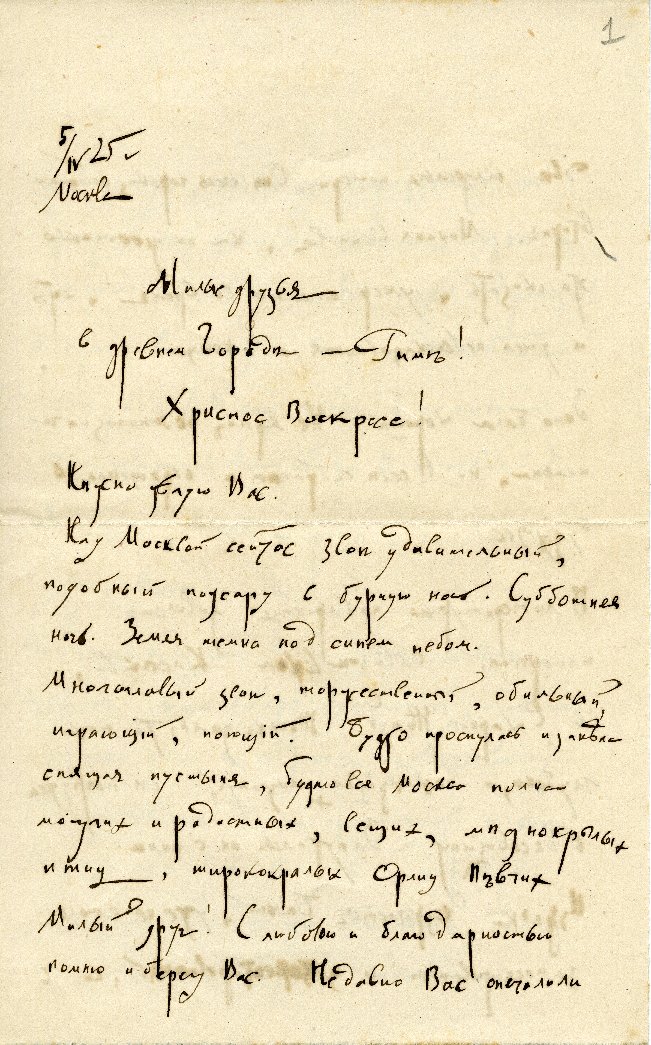 1
5/IV 25 г.
Москва
Милые друзья
в древнем Городе — Римѣ!
Христос Воскресе!
Нѣжно целую Вас.
Над Москвой сейчас звон удивительный,
подобный пожару в бурную ночь. Субботняя
ночь. Земля темна под синем небом.
Многоглавый звон, торжественный, обильный,
играющій, поющій. Будто проснулась и запѣла
спящая пустыня, будто вся Москва полна
могучих и радостных, вещих, мѣднокрылых
птиц, ширококрылых Орлиц Пѣвчих
Милый друг! С любовью и благодарностью
помню и берегу Вас. Недавно Вас опечалили